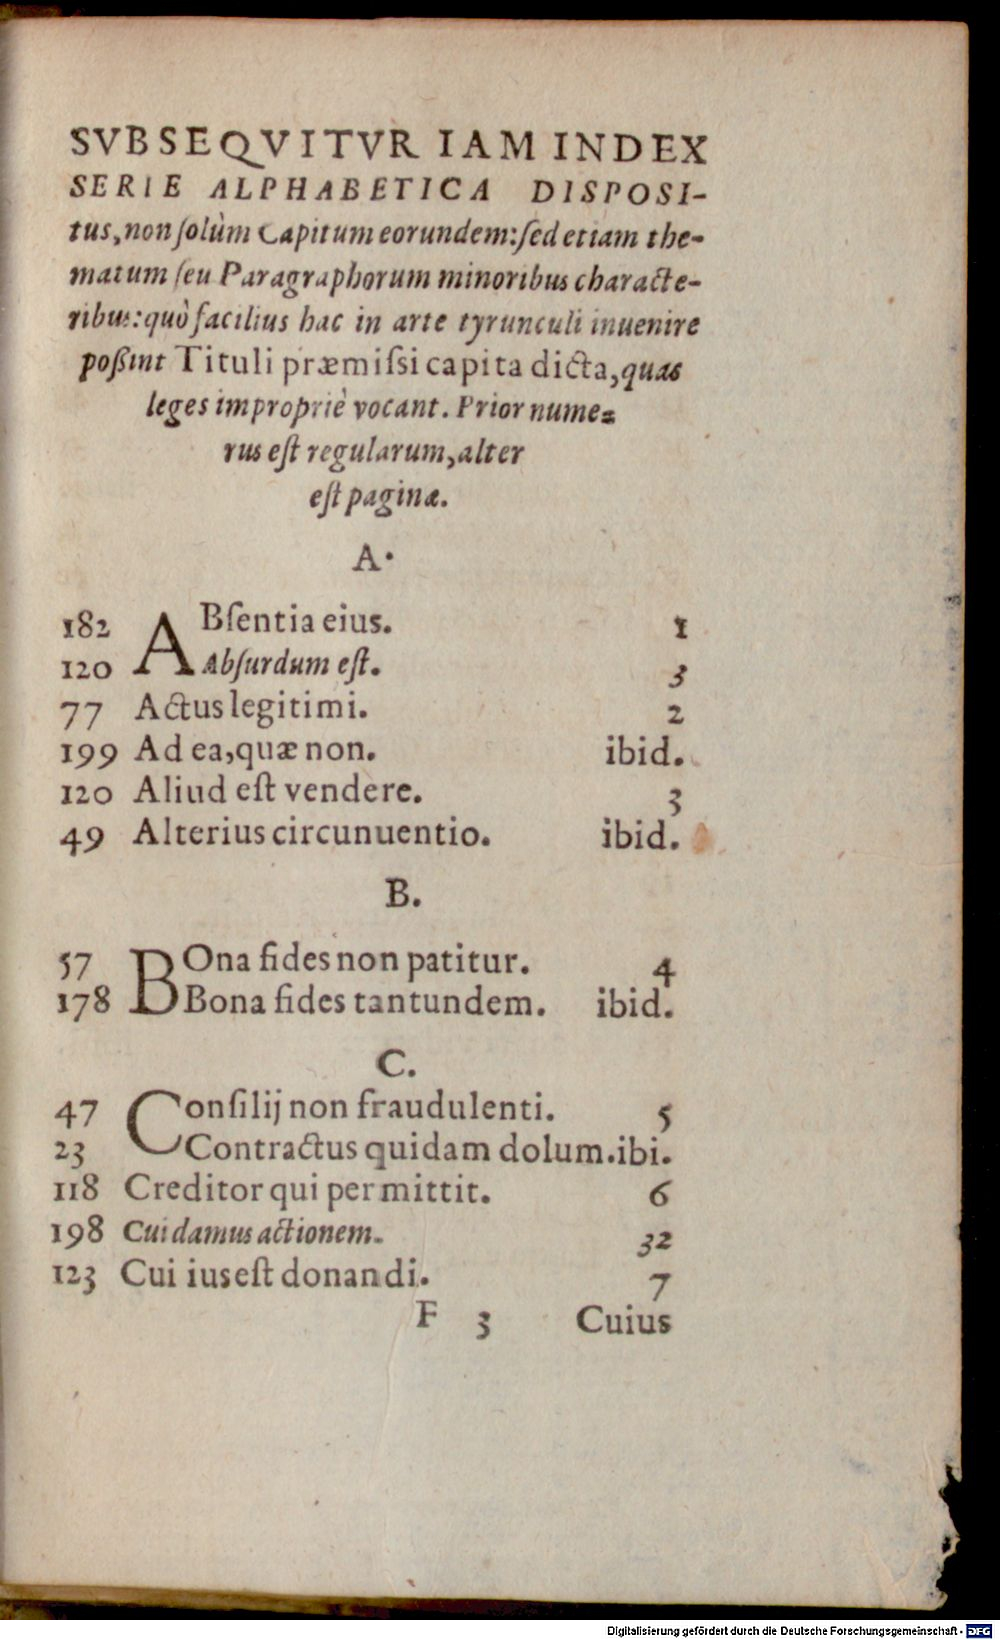 SVBSEQVITVR IAM INDEX
SERIE ALPHABETICA DISPOSI-
tus, non ſolùm Capitum eorundem: ſed etiam the-
matum ſeu Paragraphorum minoribus characte-
ribus: quò facilius hac in arte tyrunculi inuenire
poßint Tituli præmiſsi capita dicta, quas
leges impropriè vocant. Prior nume-
rus eſt regularum, alter
eſt paginæ.
A.
182 ABſentia eius. 1
120 Abſurdum eſt. 3
77 Actus legitimi. 2
199 Ad ea, quæ non. ibid.
120 Aliud eſt vendere. 3
49 Alterius circunuentio. ibid.
B.
57 BOna fides non patitur. 4
178 Bona fides tantundem. ibid.
C.
47 Conſilij non fraudulenti. 5
23 Contractus quidam dolum. ibi.
118 Creditor qui permittit. 6
198 Cui damus actionem. 32
123 Cui ius eſt donandi. 7
F 3 Cuius
Digitalisierung gefördert durch die Deutsche Forschungsgemeinschaft - DFG